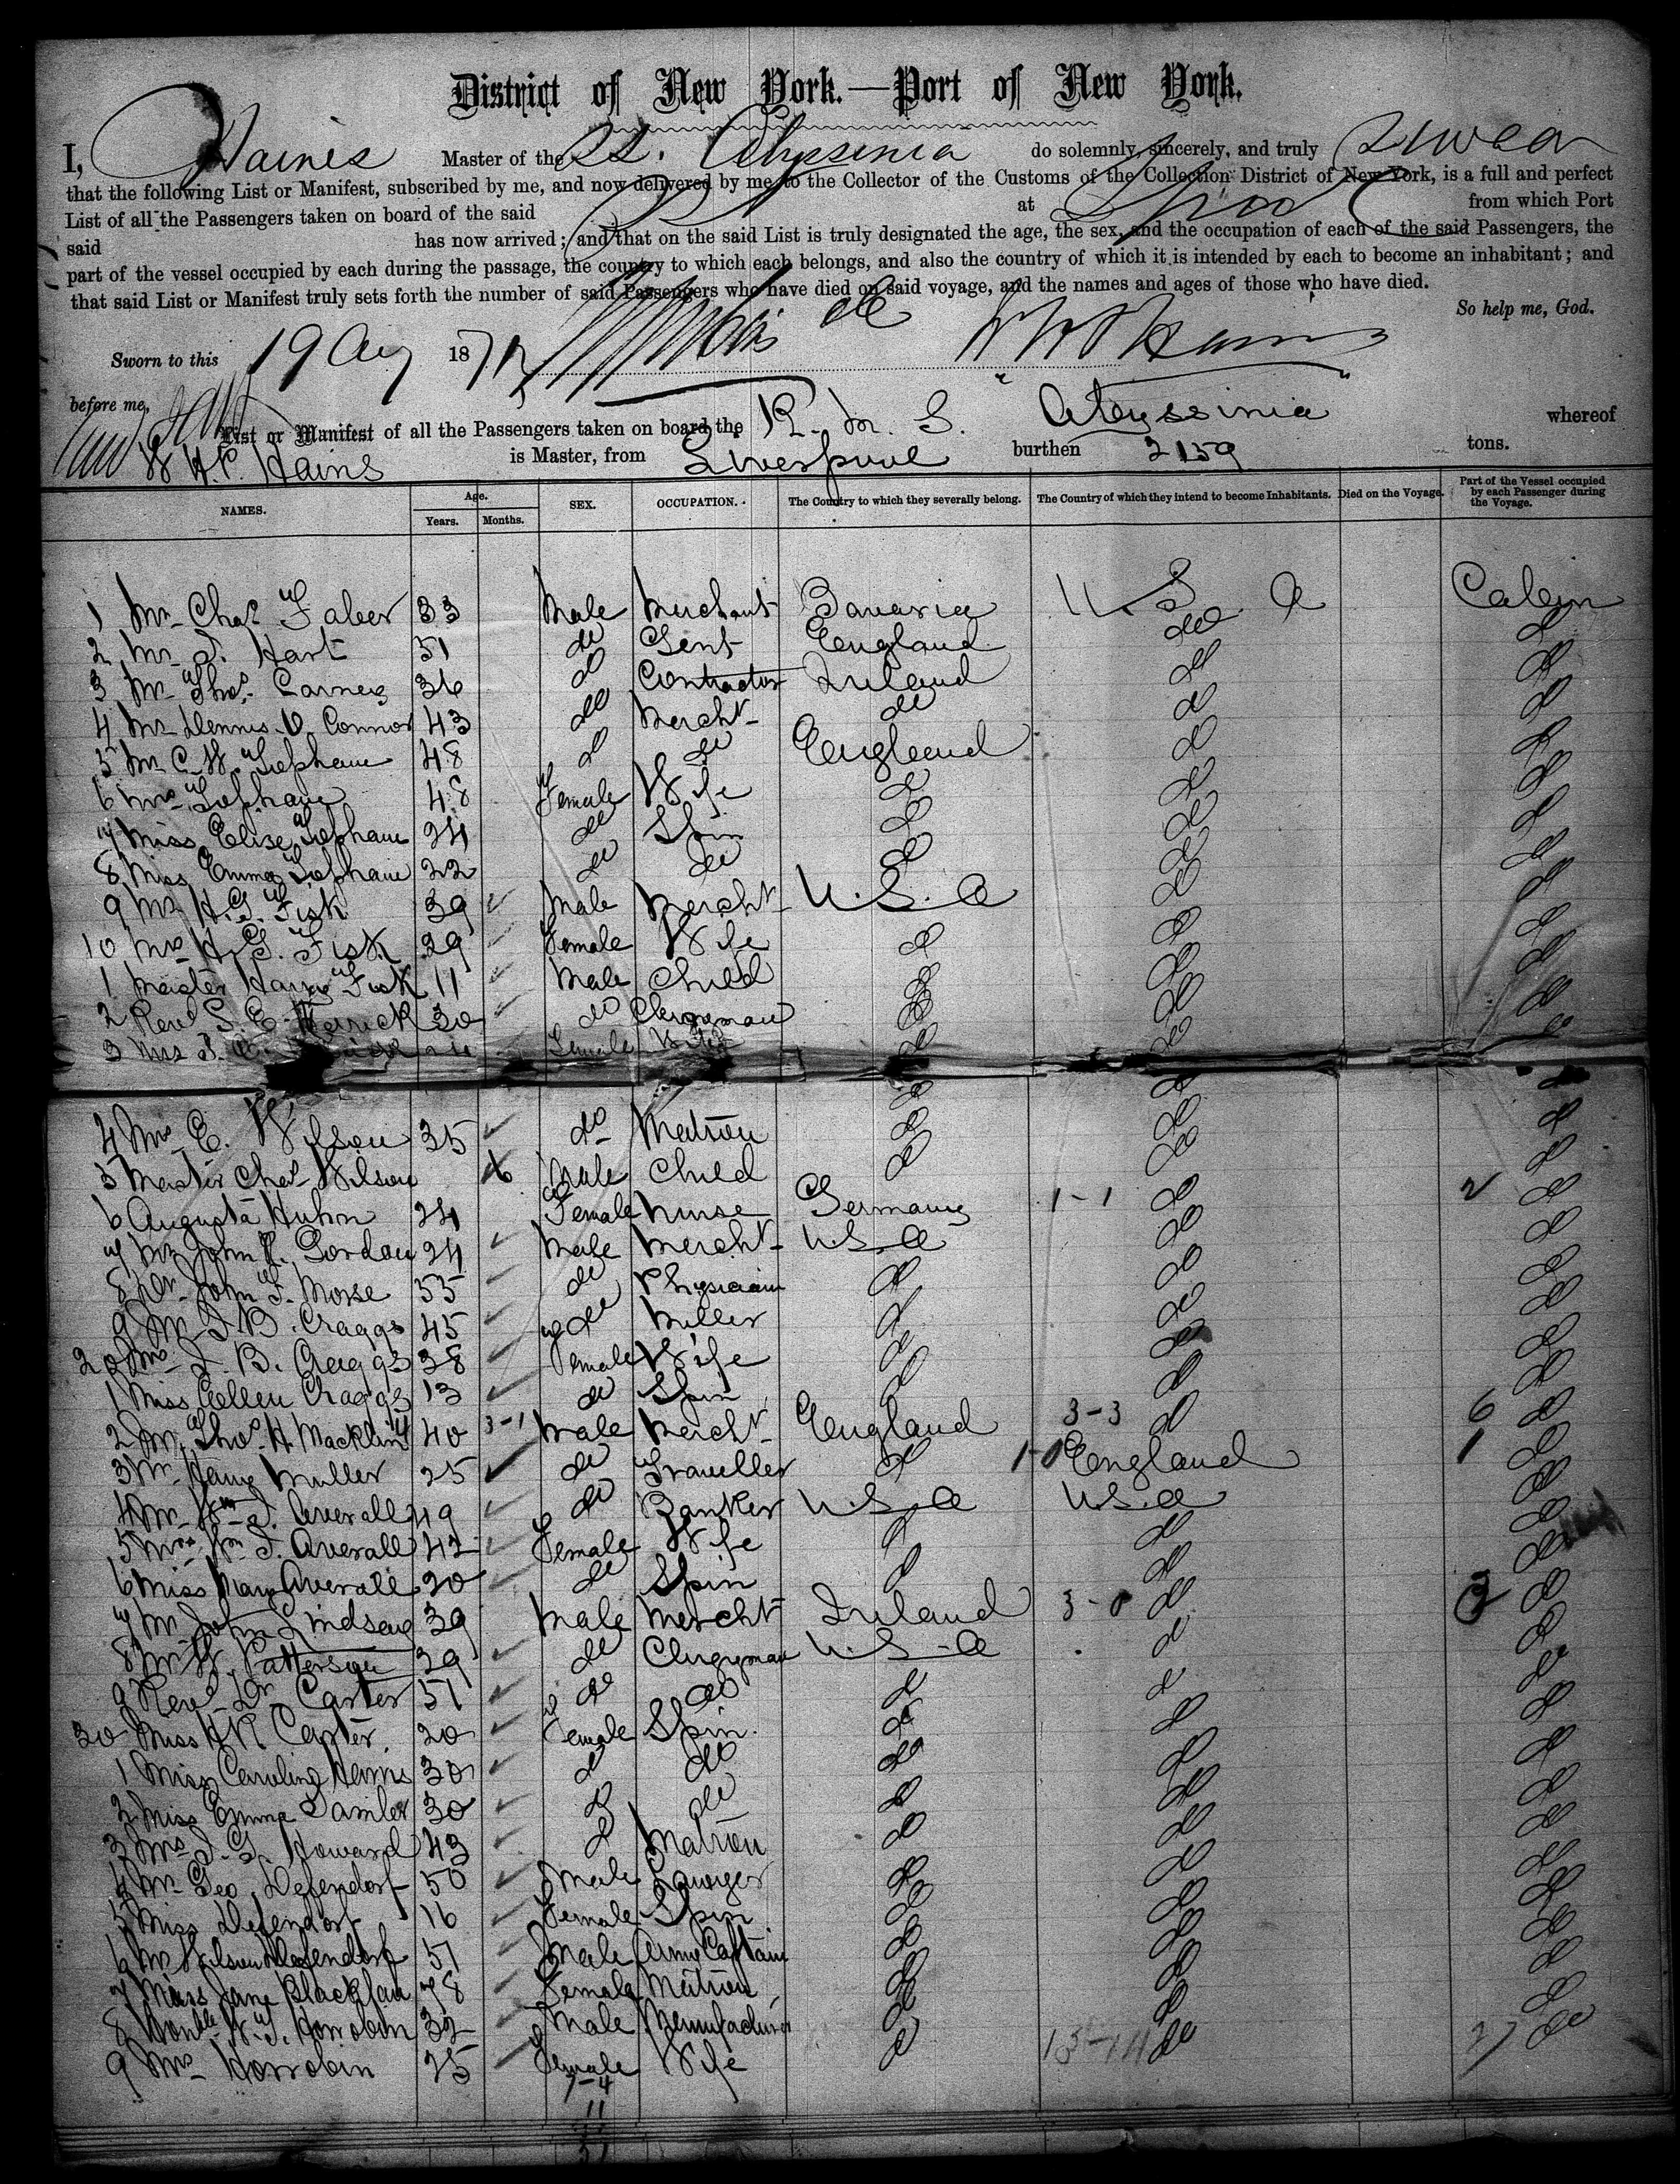 District of New York.—Port of New York.
I, Hains Master of the SS. Abyssinia do solemnly, sincerely, and truly swear
that the following List or Manifest, subscribed by me, and now delivered by me to the Collector of the Customs of the Collection District of New York, is a full and perfect
List of all the Passengers taken on board of the said at L'pool from which Port
said has now arrived; and that on the said List is truly designated the age, the sex, and the occupation of each of the said Passengers, the
part of the vessel occupied by each during the passage, the country to which each belongs, and also the country of which it is intended by each to become an inhabitant; and
that said List or Manifest truly sets forth the number of said Passengers who have died on said voyage, and the names and ages of those who have died.
So help me, God.
Sworn to this 19 Aug 187 W H P Hains
before me,
List or Manifest of all the Passengers taken on board the R. M. S. "Abyssinia" whereof
W H. P. Hains is Master, from Liverpool burthen 2159 tons.
NAMES. Age. Years. Months. SEX. OCCUPATION. The Country to which they severally belong. The Country of which they intend to become Inhabitants. Died on the Voyage. Part of the Vessel occupied by each Passenger during the Voyage.
1 Mr Chas Faber 33 Male Merchant Bavaria U. S. A Cabin
2 Mr J. Hart 51 do Gent England do do
3 Mr Thos. Carney 36 do Contractor Ireland do do
4 Mr Dennis O Connor 43 do Mercht do do do
5 Mr C. W. Tephane 48 do do England do do
6 Mrs Tephane 48 Female Wife do do do
7 Miss Elise Tephane 24 do Spin do do do
8 Miss Emma Tephane 22 do do do do do
9 Mr H. G. Fisk 39 Male Mercht U. S. A do do
10 Mrs H. G. Fisk 29 Female Wife do do do
1 Master Harry Fisk 11 Male Child do do do
2 Revd S. E. Herrick 30 do Clergyman do do do
3 Mrs S. E. Female Wife do do do
4 Mrs E. Wilson 35 do Matron do do do
5 Master Chas Wilson 6 Male Child do do do
6 Augusta Huhn 24 Female Nurse Germany 1-1 do 2 do
7 Mr John R. Gordan 24 Male Mercht U. S. A do do
8 Dr John F. Morse 55 do Physician do do do
9 Mr J. B. Craggs 45 do Miller do do do
20 Mrs J. B. Craggs 38 Female Wife do do do
1 Miss Ellen Craggs 13 do Spin do do do
2 Mr Thos. H. Macklin 40 3-1 Male Mercht England 3-3 do 6 do
3 Mr Harry Miller 25 do Traveller do 1-0 England 1 do
4 Mr Wm J. Averall 49 do Banker U. S. A U. S. A do
5 Mrs Wm J. Averall 42 Female Wife do do do
6 Miss Mary Averall 20 do Spin do do do
7 Mr John Lindsay 39 Male Mercht Ireland 3-0 do 3 do
8 Mr W. Patterson 29 do Clergyman U. S. A do do
9 Revd Dr Carter 51 do do do do do
30 Miss H R Carter 20 Female Spin. do do do
1 Miss Caroline Harris 30 do do do do do
2 Miss Emma Lamler 30 do do do do do
3 Mrs J. G. Howard 43 do Matron do do do
4 Mr Geo Defendorf 50 Male Lawyer do do do
5 Miss Defendorf 16 Female Spin do do do
6 Mr Wilson Defendorf 51 Male Army Captain do do do
7 Miss Jane Blackfan 78 Female Matron do do do
8 Honble W. T. Horrobin 32 Male Manufacturer do do do
9 Mrs Horrobin 25 Female Wife do 13-14 do 27 do
7-4
11